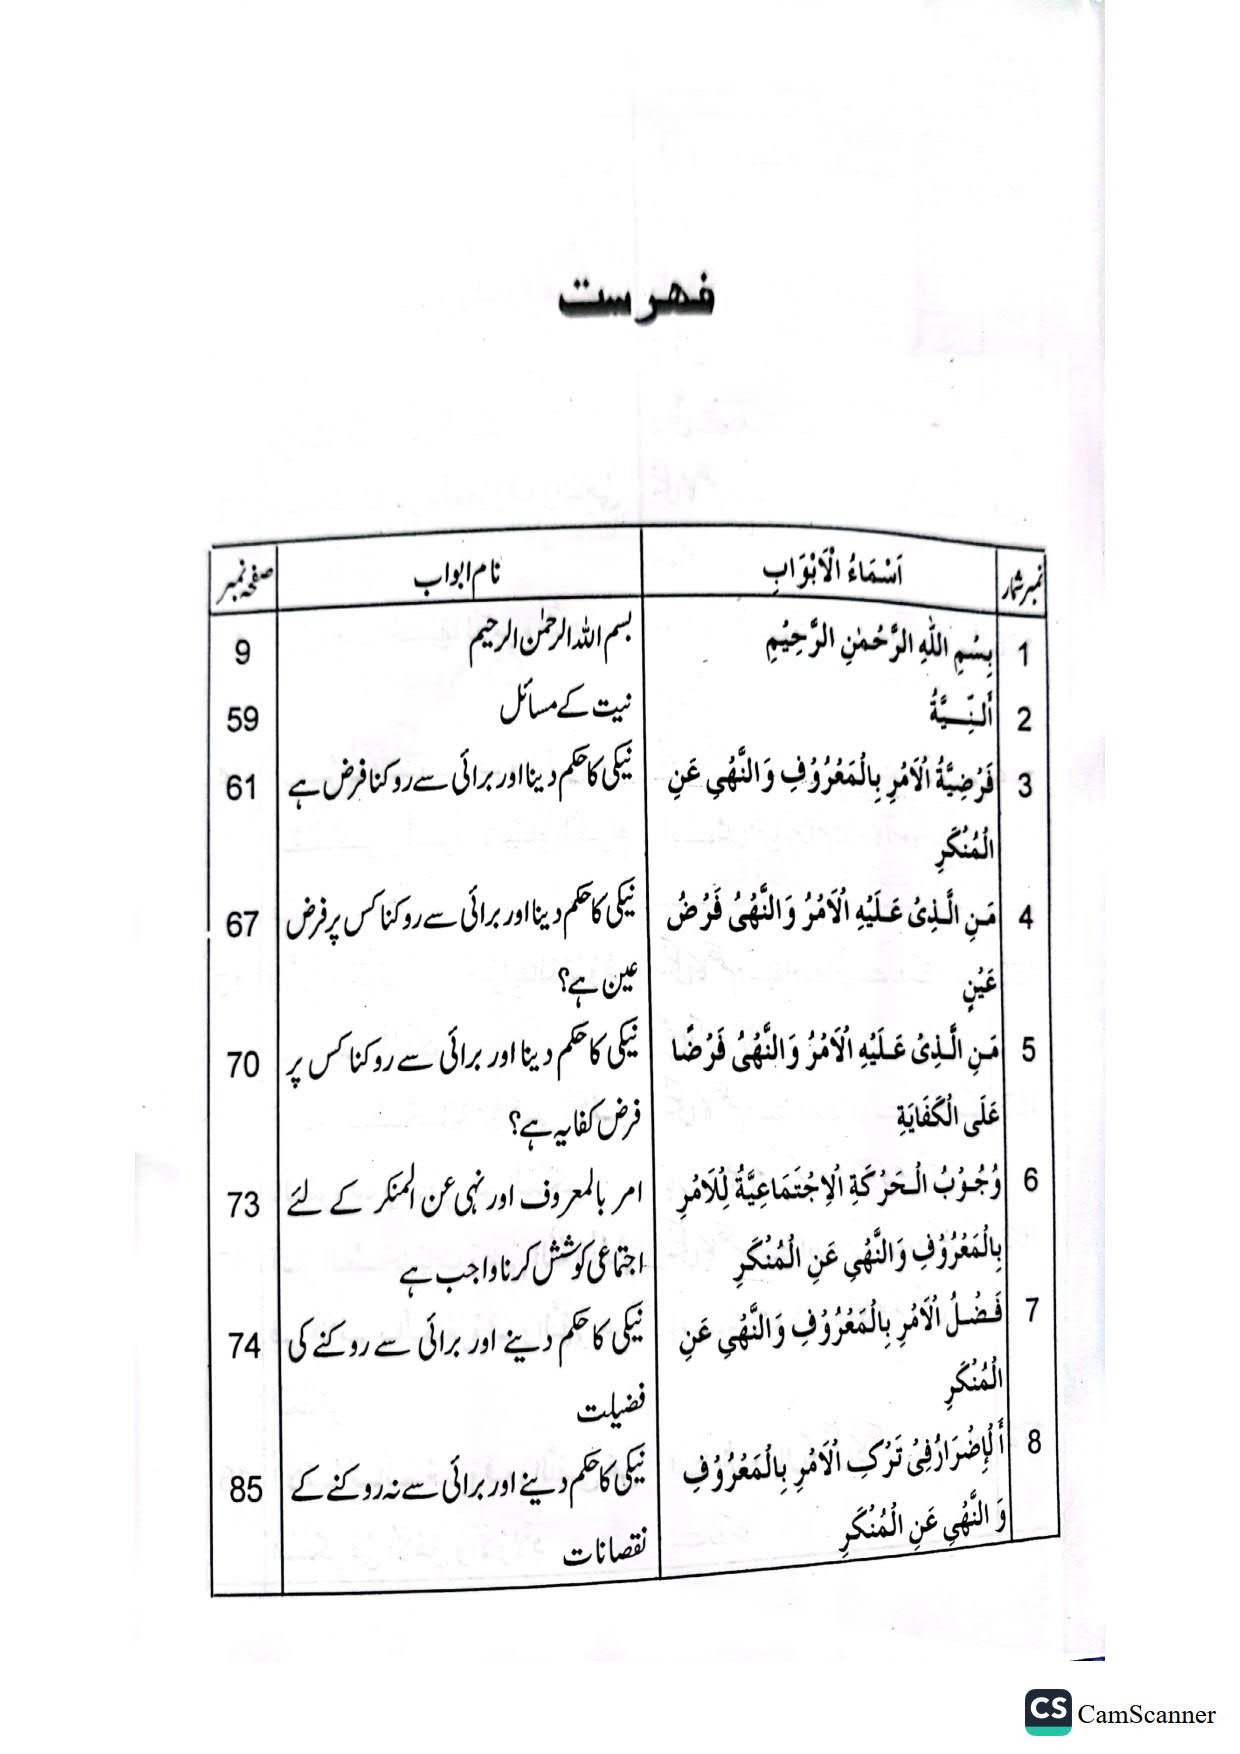 فهرست
نمبر شمار اَسْمَاءُ الْاَبْوَابِ نام ابواب صفحہ نمبر
1 بِسْمِ اللّٰهِ الرَّحْمٰنِ الرَّحِيْمِ بسم اللہ الرحمٰن الرحیم 9
2 أَلنِّـيَّةُ نیت کے مسائل 59
3 فَرْضِيَّةُ الْاَمْرِ بِالْمَعْرُوْفِ وَالنَّهْىِ عَنِ نیکی کا حکم دینا اور برائی سے روکنا فرض ہے 61
الْمُنْكَرِ
4 مَنِ الَّذِىْ عَلَيْهِ الْاَمْرُ وَالنَّهْىُ فَرْضُ نیکی کا حکم دینا اور برائی سے روکنا کس پر فرض 67
عَيْنٍ عین ہے؟
5 مَنِ الَّذِىْ عَلَيْهِ الْاَمْرُ وَالنَّهْىُ فَرْضًا نیکی کا حکم دینا اور برائی سے روکنا کس پر 70
عَلَى الْكَفَايَةِ فرض کفایہ ہے؟
6 وُجُوْبُ الْحَرْكَةِ الْاِجْتَمَاعِيَّةُ لِلْاَمْرِ امر بالمعروف اور نہی عن المنکر کے لئے 73
بِالْمَعْرُوْفِ وَالنَّهْىِ عَنِ الْمُنْكَرِ اجتماعی کوشش کرنا واجب ہے
7 فَضْلُ الْاَمْرِ بِالْمَعْرُوْفِ وَالنَّهْىِ عَنِ نیکی کا حکم دینے اور برائی سے روکنے کی 74
الْمُنْكَرِ فضیلت
8 أَلْإِضْرَارُ فِىْ تَرْكِ الْاَمْرِ بِالْمَعْرُوْفِ نیکی کا حکم دینے اور برائی سے نہ روکنے کے 85
وَ النَّهْىِ عَنِ الْمُنْكَرِ نقصانات
CS CamScanner